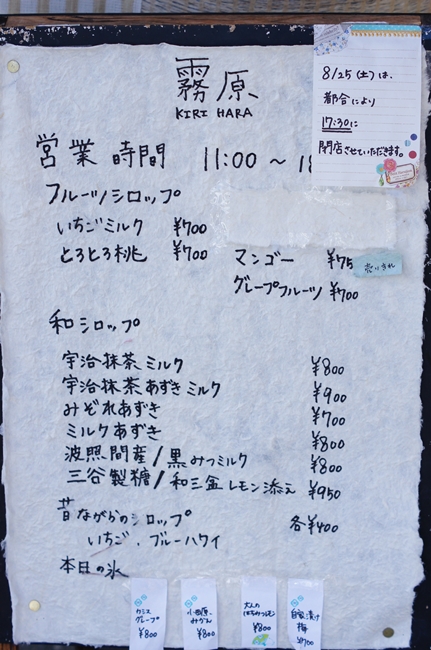 霧原
KIRI HARA
8/25(土)は、
都合により
17:30に
閉店させていただきます。
営業時間 11:00 〜
フルーツシロップ
いちごミルク ¥700
とろとろ桃 ¥700
マンゴー ¥75
売り切れ
グレープフルーツ ¥700
和シロップ
宇治抹茶ミルク ¥800
宇治抹茶あずきミルク ¥900
みぞれあずき ¥700
ミルクあずき ¥800
波照間産/黒みつミルク ¥800
三谷製糖/和三盆レモン添え ¥950
昔ながらのシロップ 各¥400
いちご、ブルーハワイ
本日の氷
カシス
グレープ
¥800
小田原
みかん
¥800
大人の
はちみつレモン
¥800
自家漬け
梅
¥700